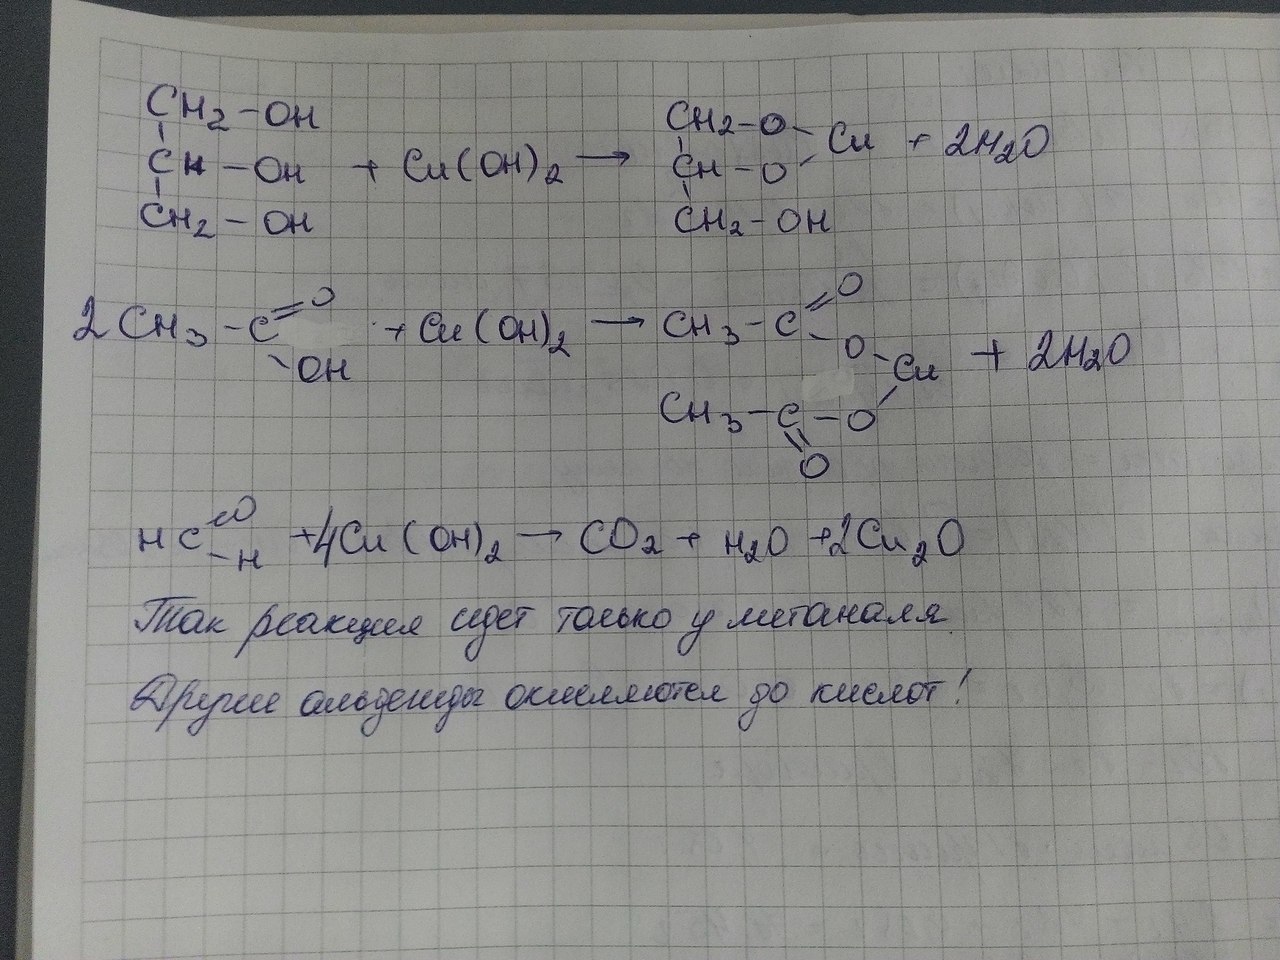 CH2-OH CH2-O
CH-OH + Cu(OH)2 → CH-O Cu + 2H2O
CH2-OH CH2-OH
2CH3-C=O OH + Cu(OH)2 → CH3-C=O O Cu + 2H2O
CH3-C-O
=O
HC=O -H +4Cu(OH)2 → CO2 + H2O +2Cu2O
Так реакция идет только у метаналя
Другие альдегиды окисляются до кислот!